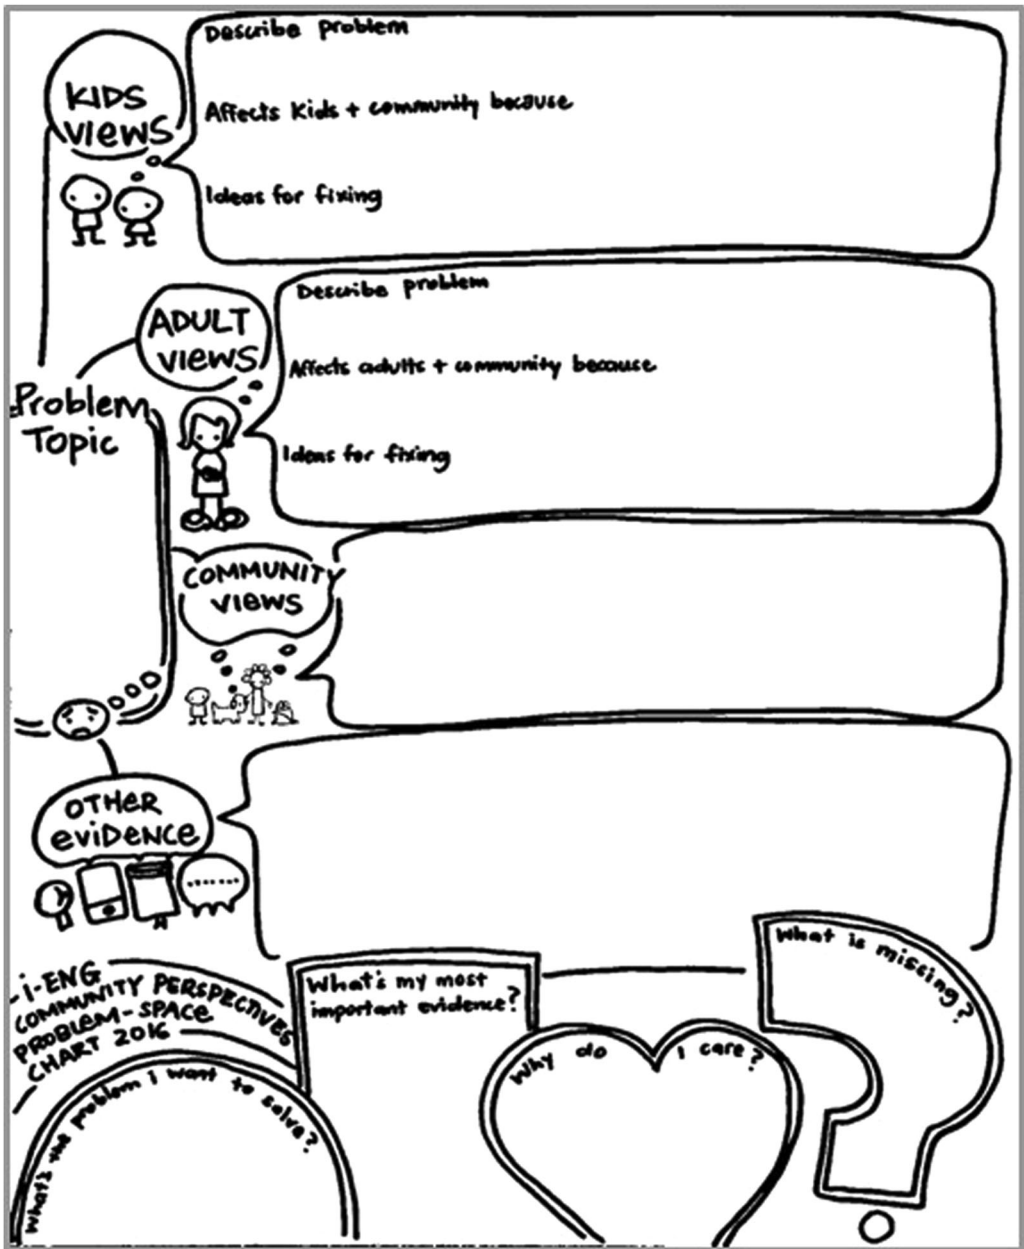 KIDS
VIEWS
Describe problem
Affects Kids + community because
Ideas for fixing
ADULT
VIEWS
Describe problem
Affects adults + community because
Ideas for fixing
Problem
Topic
COMMUNITY
VIEWS
OTHER
EVIDENCE
-i-ENG
COMMUNITY PERSPECTIVES
PROBLEM-SPACE
CHART 2016
What's the problem i want to solve?
What's my most
important evidence?
Why do I care?
What is missing?